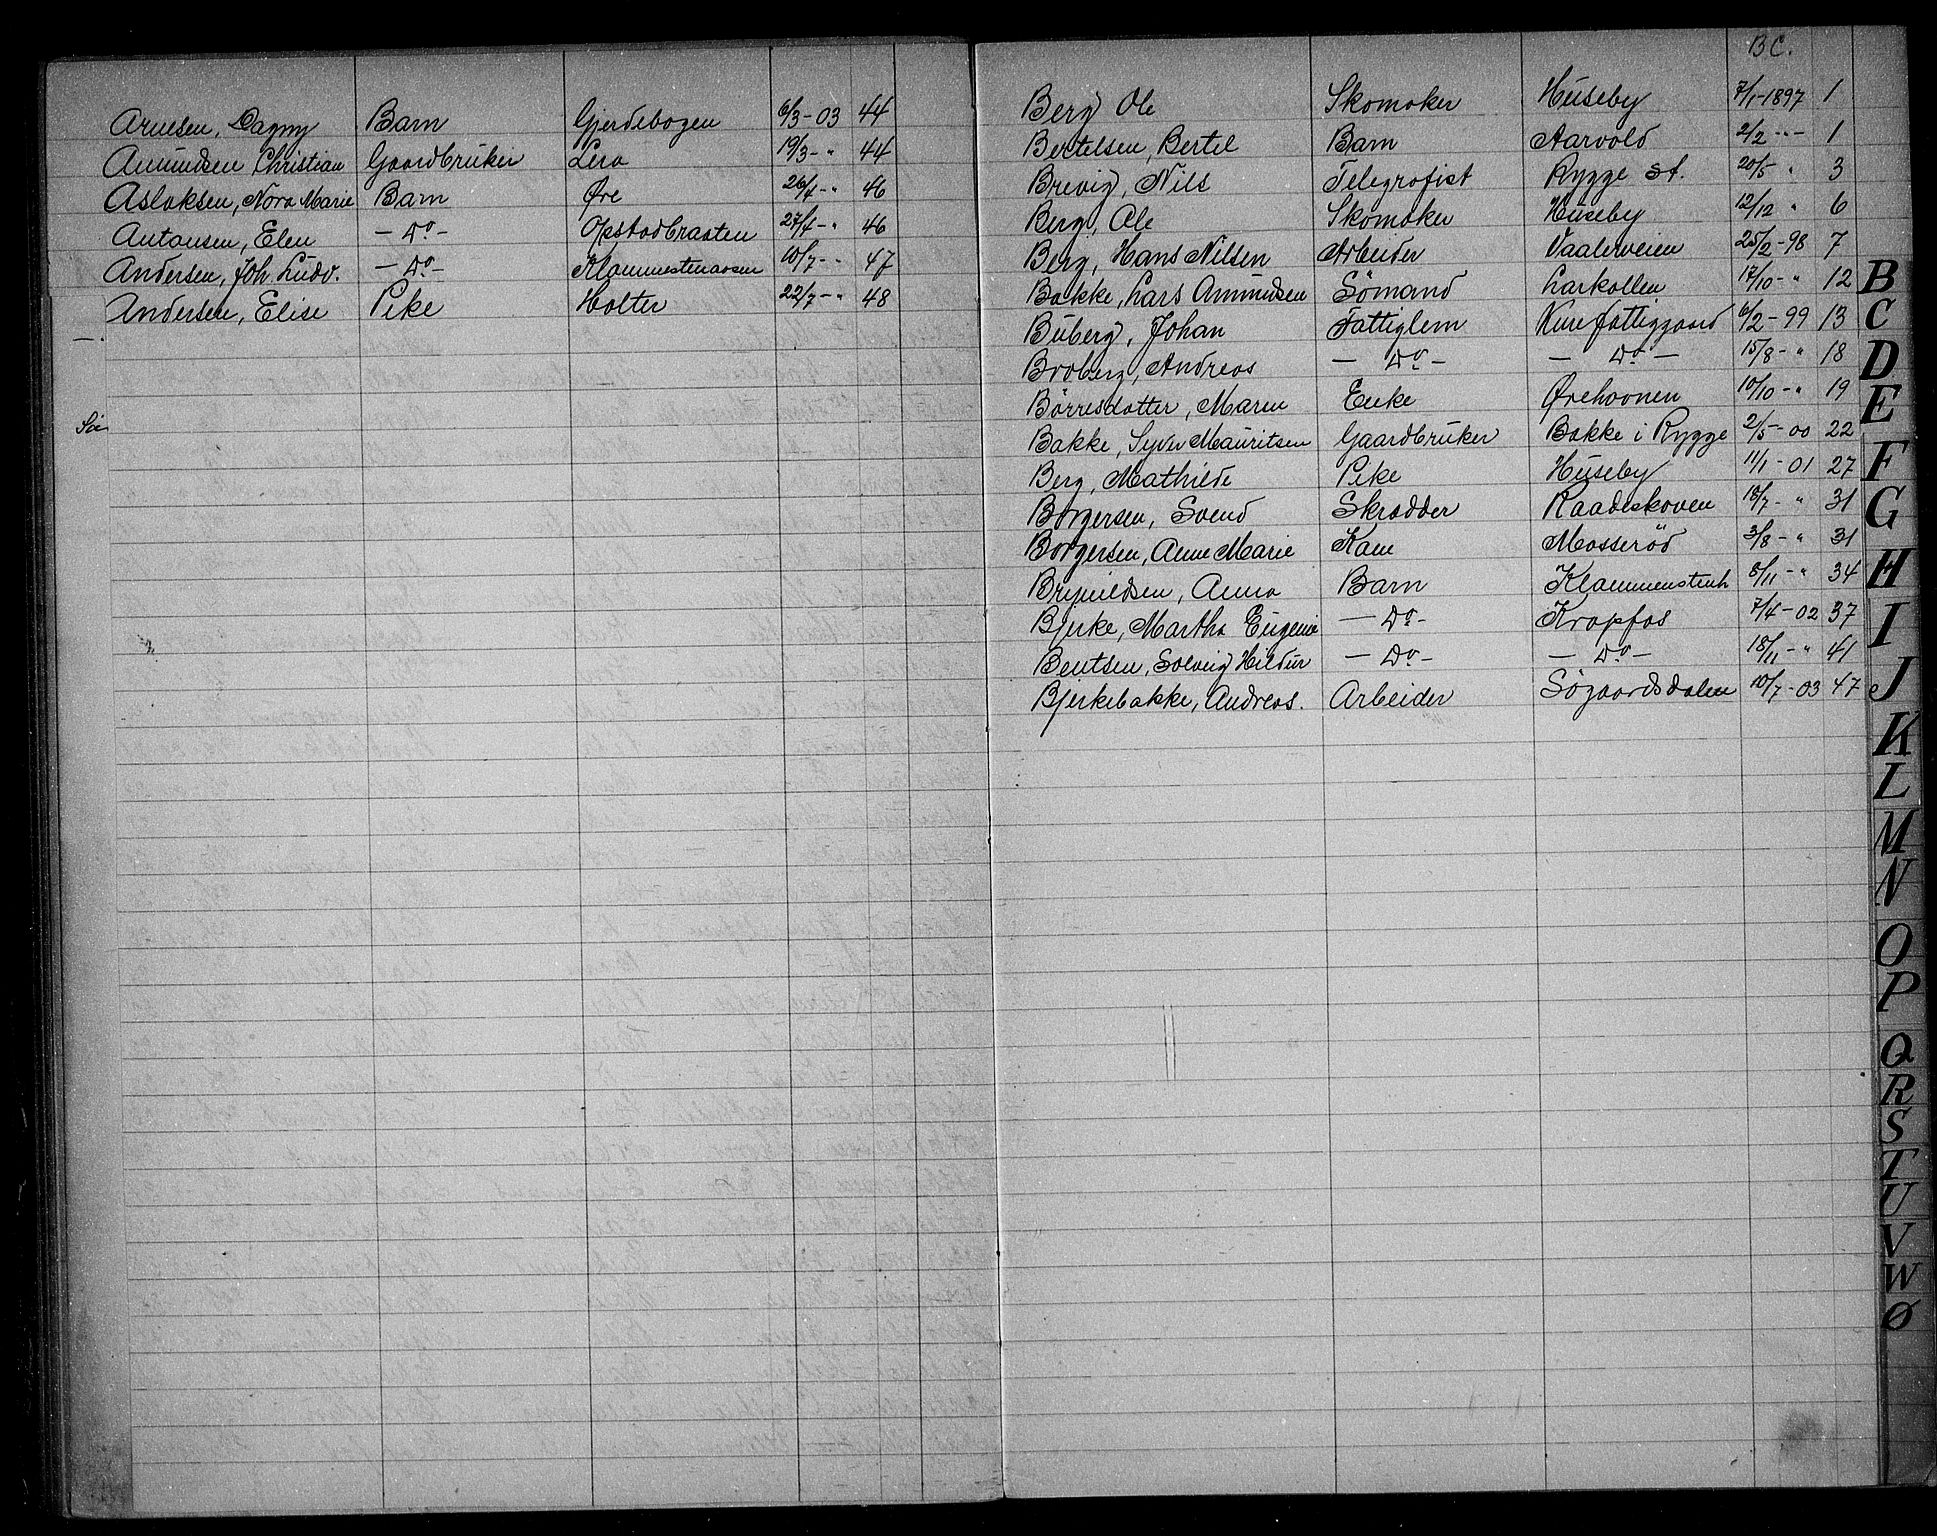 Arnesen, Dagny Barn Gjerdebogen 6/3-03 44
Amundsen Christian Gaardbruker Lera 19/3-" 44
Aslaksen, Nora Marie Barn Øre 26/4-" 46
Antonsen, Elen - Do - Opstadbraaten 27/4-" 46
Andersen, Joh. Ludv. - Do - 10/7-" 47
Andersen, Elise Pike Holter 22/7-" 48
BC.
Berg, Ole Skomaker Huseby 7/1-1897 1
Bertelsen, Bertel Barn Aarvold 2/2 "- 1
Brevig, Nils Telegrafist Rygge st. 20/5 " 3
Berg, Ole Skomaker Huseby 12/12 " 6
Berg, Hans Nilsen Arbeider Vaalerveien 25/2-98 7
Bakke, Lars Amundsen Sömand Larkollen 17/10-" 12
Buberg, Johan Fattiglem Kure fattiggaard 6/2-99 13
Broberg, Andreas - Do - - Do - 15/8-" 18
Börresdatter, Maren Enke Ørehavnen 10/10-" 19
Bakke, Syver Mauritsen Gaardbruker Bakke i Rygge 2/5-00 22
Berg, Mathilde Pike Huseby 11/1-01 27
Borgersen, Svend Skrædder Raadeskoven 18/7-" 31
Borgersen, Anne Marie Kone Mosserød 3/8-" 31
Brynildsen, Anna Barn Klammenstenh 8/11-" 34
Bjerke, Martha Eugenie - Do - Kropfos 7/4-02 37
Bentsen, Solveig Hildur - Do - - Do - 18/11-" 41
Bjerkebakke, Andreas. Arbeider Søgaardsdalen 10/7-03 47
B
C
D
E
F
G
H
I
J
K
L
M
N
O
P
Q
R
S
T
U
V
W
Ø